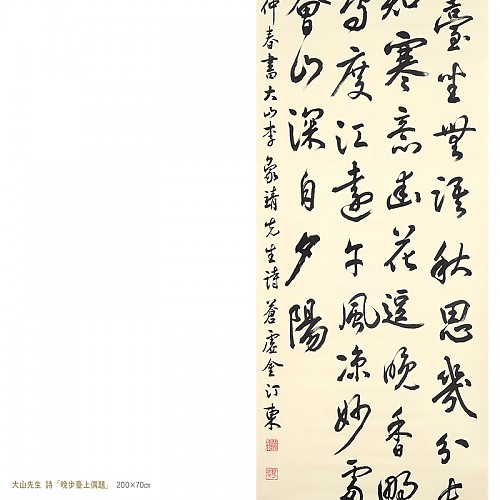 臺坐無語秋思幾分
知寒意幽花逗晚香野
度江遠午風凉妙處
會山深自夕陽
仲春書大山李象靖先生詩 蒼虛金汀東
大山先生 詩「晚步臺上偶題」 200×70㎝